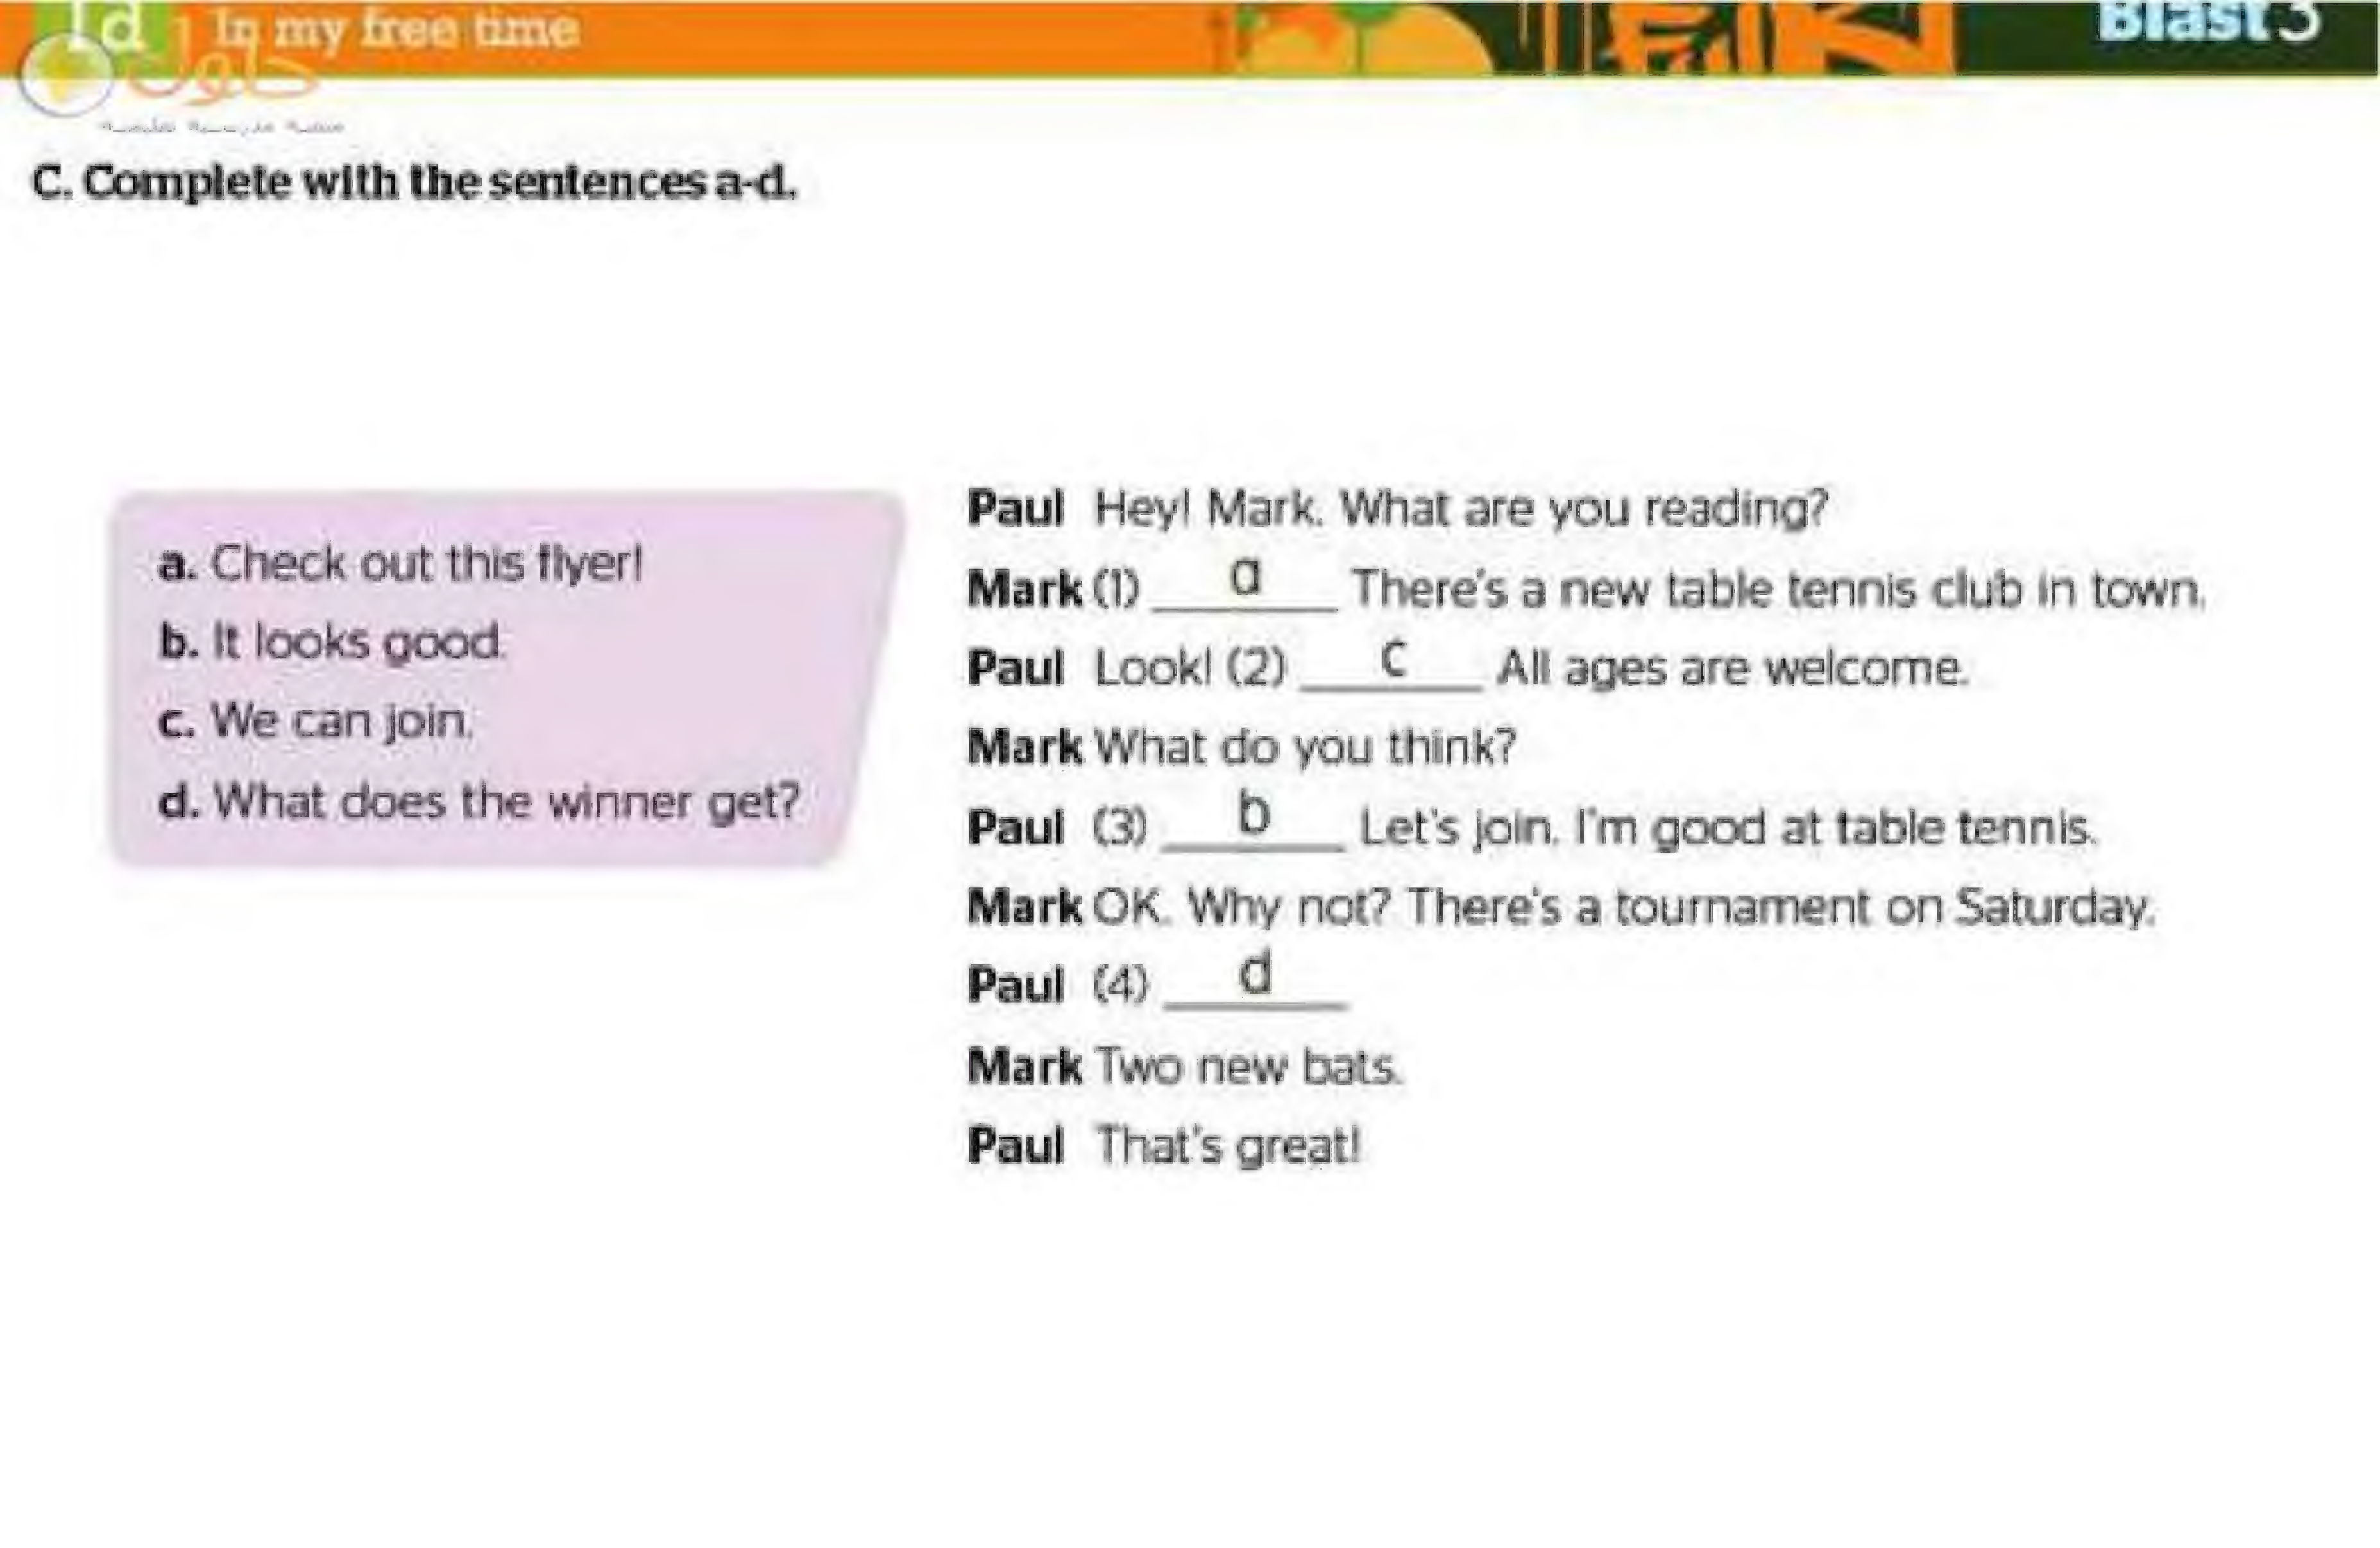 1d In my free time
Blast 3
حلول
C. Complete with the sentences a-d.
a. Check out this flyer!
b. It looks good.
c. We can join.
d. What does the winner get?
Paul Hey! Mark. What are you reading?
Mark (1) a There's a new table tennis club in town.
Paul Look! (2) c All ages are welcome.
Mark What do you think?
Paul (3) b Let's join. I'm good at table tennis.
Mark OK. Why not? There's a tournament on Saturday.
Paul (4) d
Mark Two new bats.
Paul That's great!